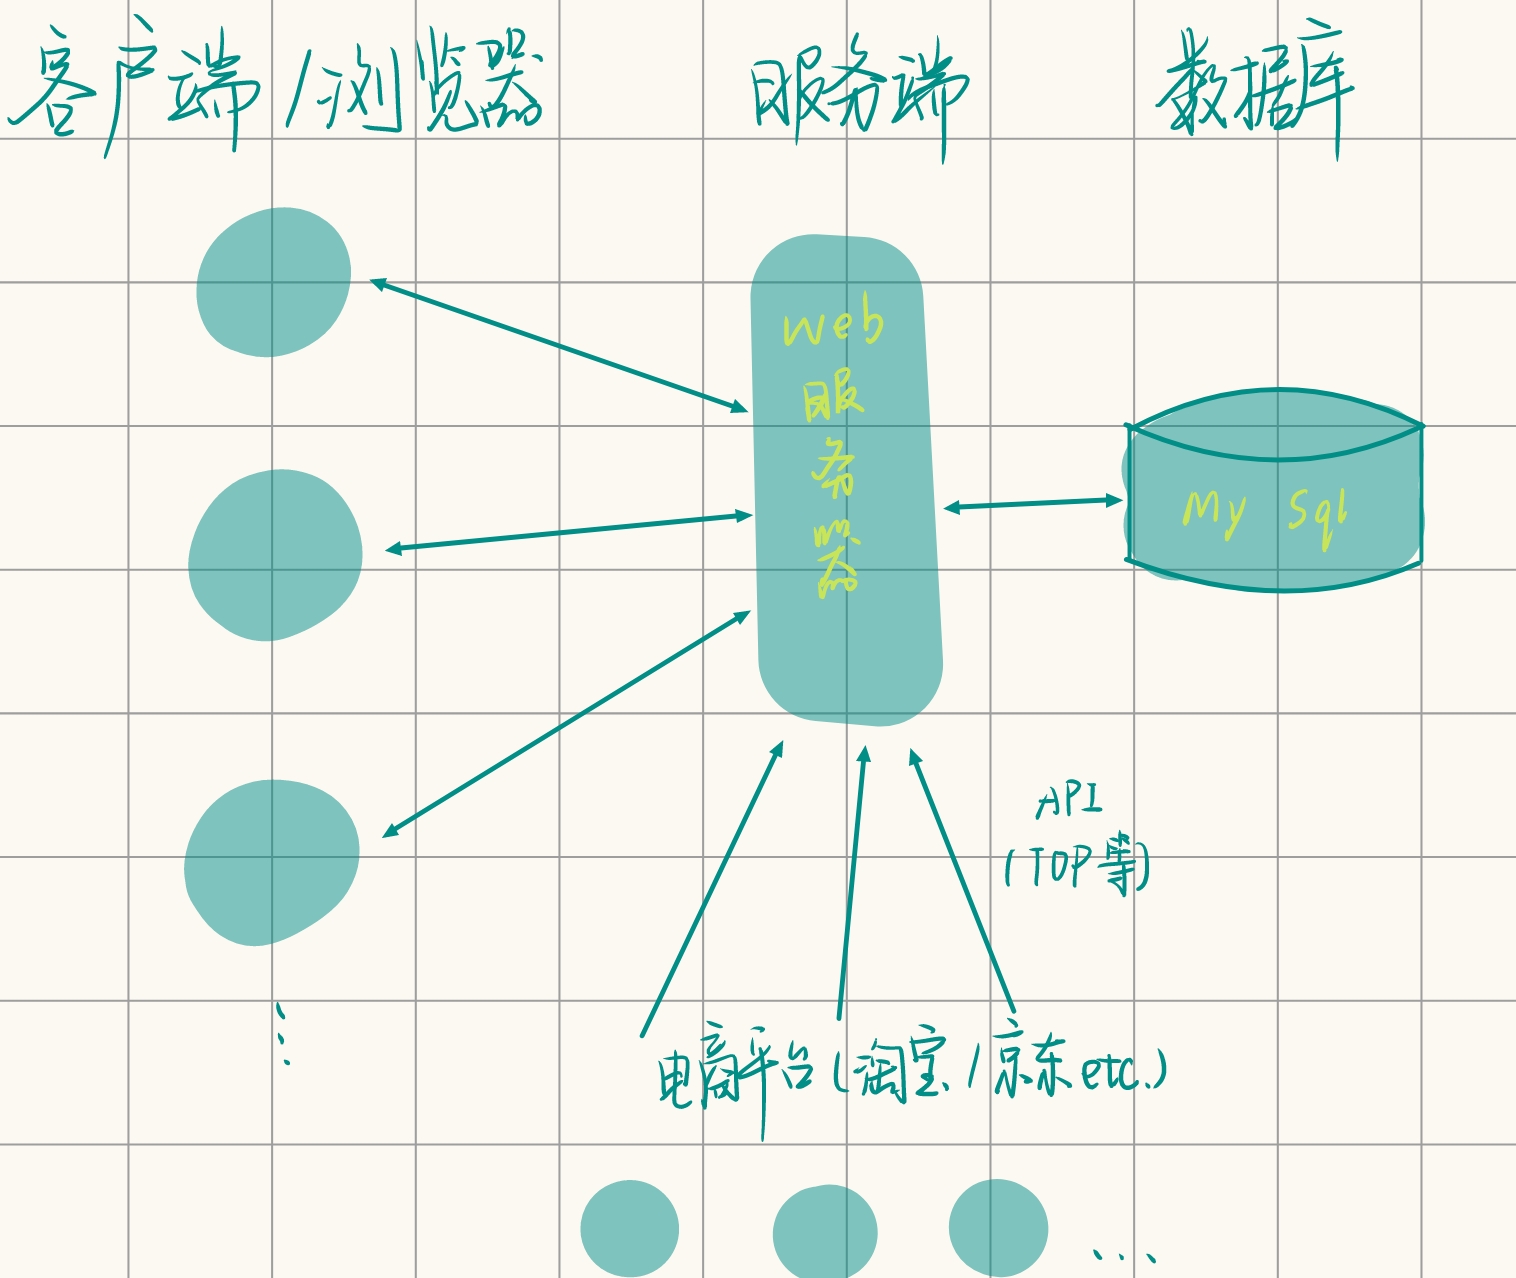 客户端/浏览器 服务端 数据库
Web
服
务
器
My Sql
API
(TOP等)
电商平台(淘宝/京东etc.)
...